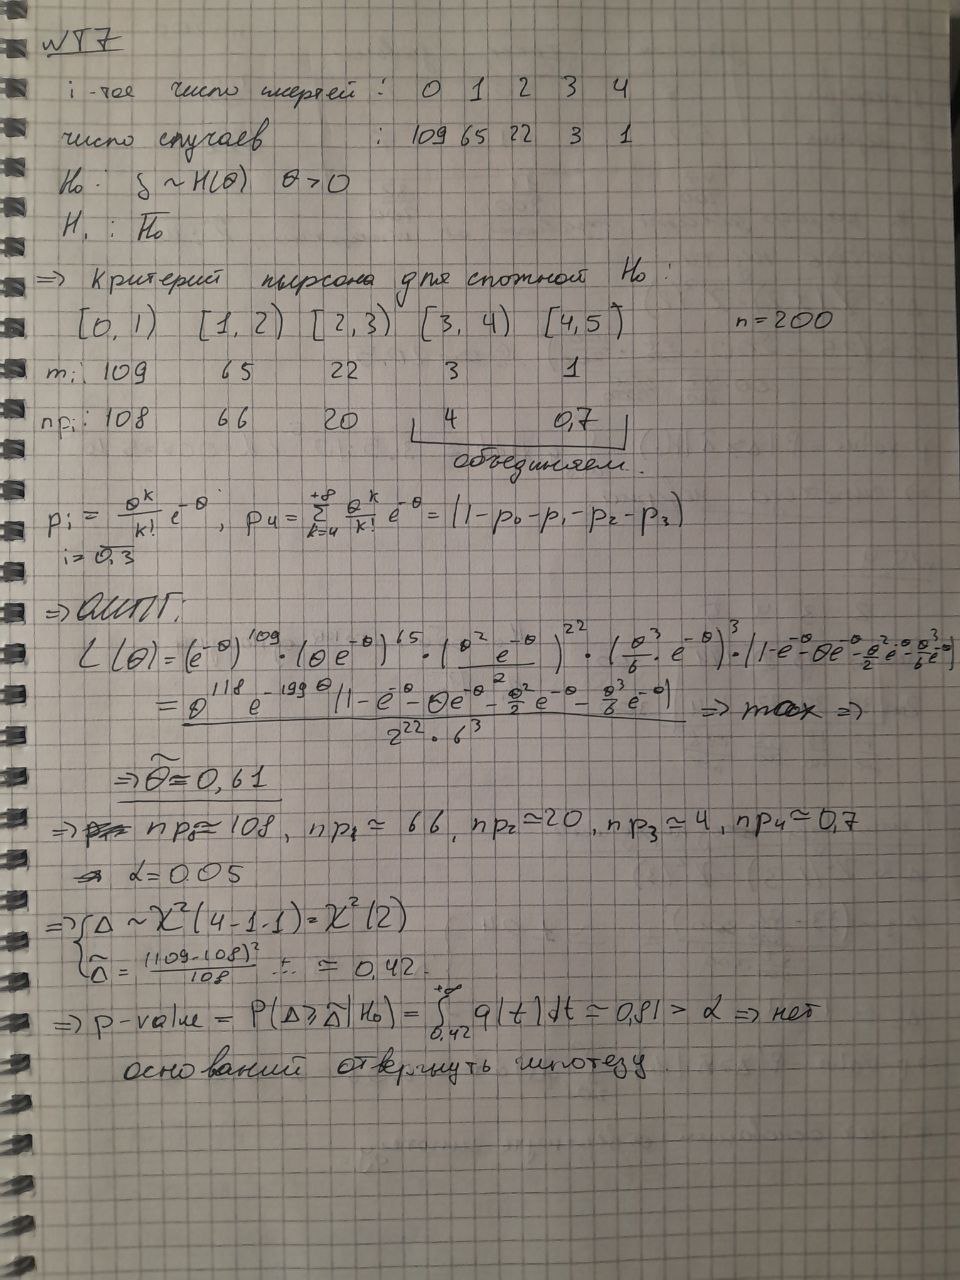 №T7
i-тое число смертей : 0 1 2 3 4
число случаев : 109 65 22 3 1
H₀ : ξ ~ П(θ) θ > 0
H₁ : H̅₀
=> Критерий пирсона для сложной H₀ :
[0, 1) [1, 2) [2, 3) [3, 4) [4, 5) n = 200
mᵢ: 109 65 22 3 1
npᵢ: 108 66 20 4 0,7
объединяем.
pᵢ = θᵏ/k! e^(-θ), p₄ = Σ_(k=4)^(+∞) θᵏ/k! e^(-θ) = (1-p₀-p₁-p₂-p₃)
i = 0,3
=> ОМПГ:
L(θ) = (e^(-θ))^109 · (θe^(-θ))^65 · (θ² e^(-θ)/2)^22 · (θ³/6 · e^(-θ))^3 · (1-e^(-θ)-θe^(-θ)-θ²/2 e^(-θ)-θ³/6 e^(-θ))
= θ^118 e^(-199θ) (1-e^(-θ)-θe^(-θ)-θ²/2 e^(-θ)-θ³/6 e^(-θ)) / 2^22 · 6^3 => max =>
=> θ̃ = 0,61
=> np₀ ≈ 108, np₁ ≈ 66, np₂ ≈ 20, np₃ ≈ 4, np₄ ≈ 0,7
α = 0.05
=> { Δ ~ χ²(4-1-1) = χ²(2)
Δ̃ = (109-108)²/108 + .. ≈ 0,42.
=> p-value = P(Δ ≥ Δ̃ | H₀) = ∫_(0,42)^(+∞) q(t) dt ≈ 0,81 > α => нет
оснований отвергнуть гипотезу.